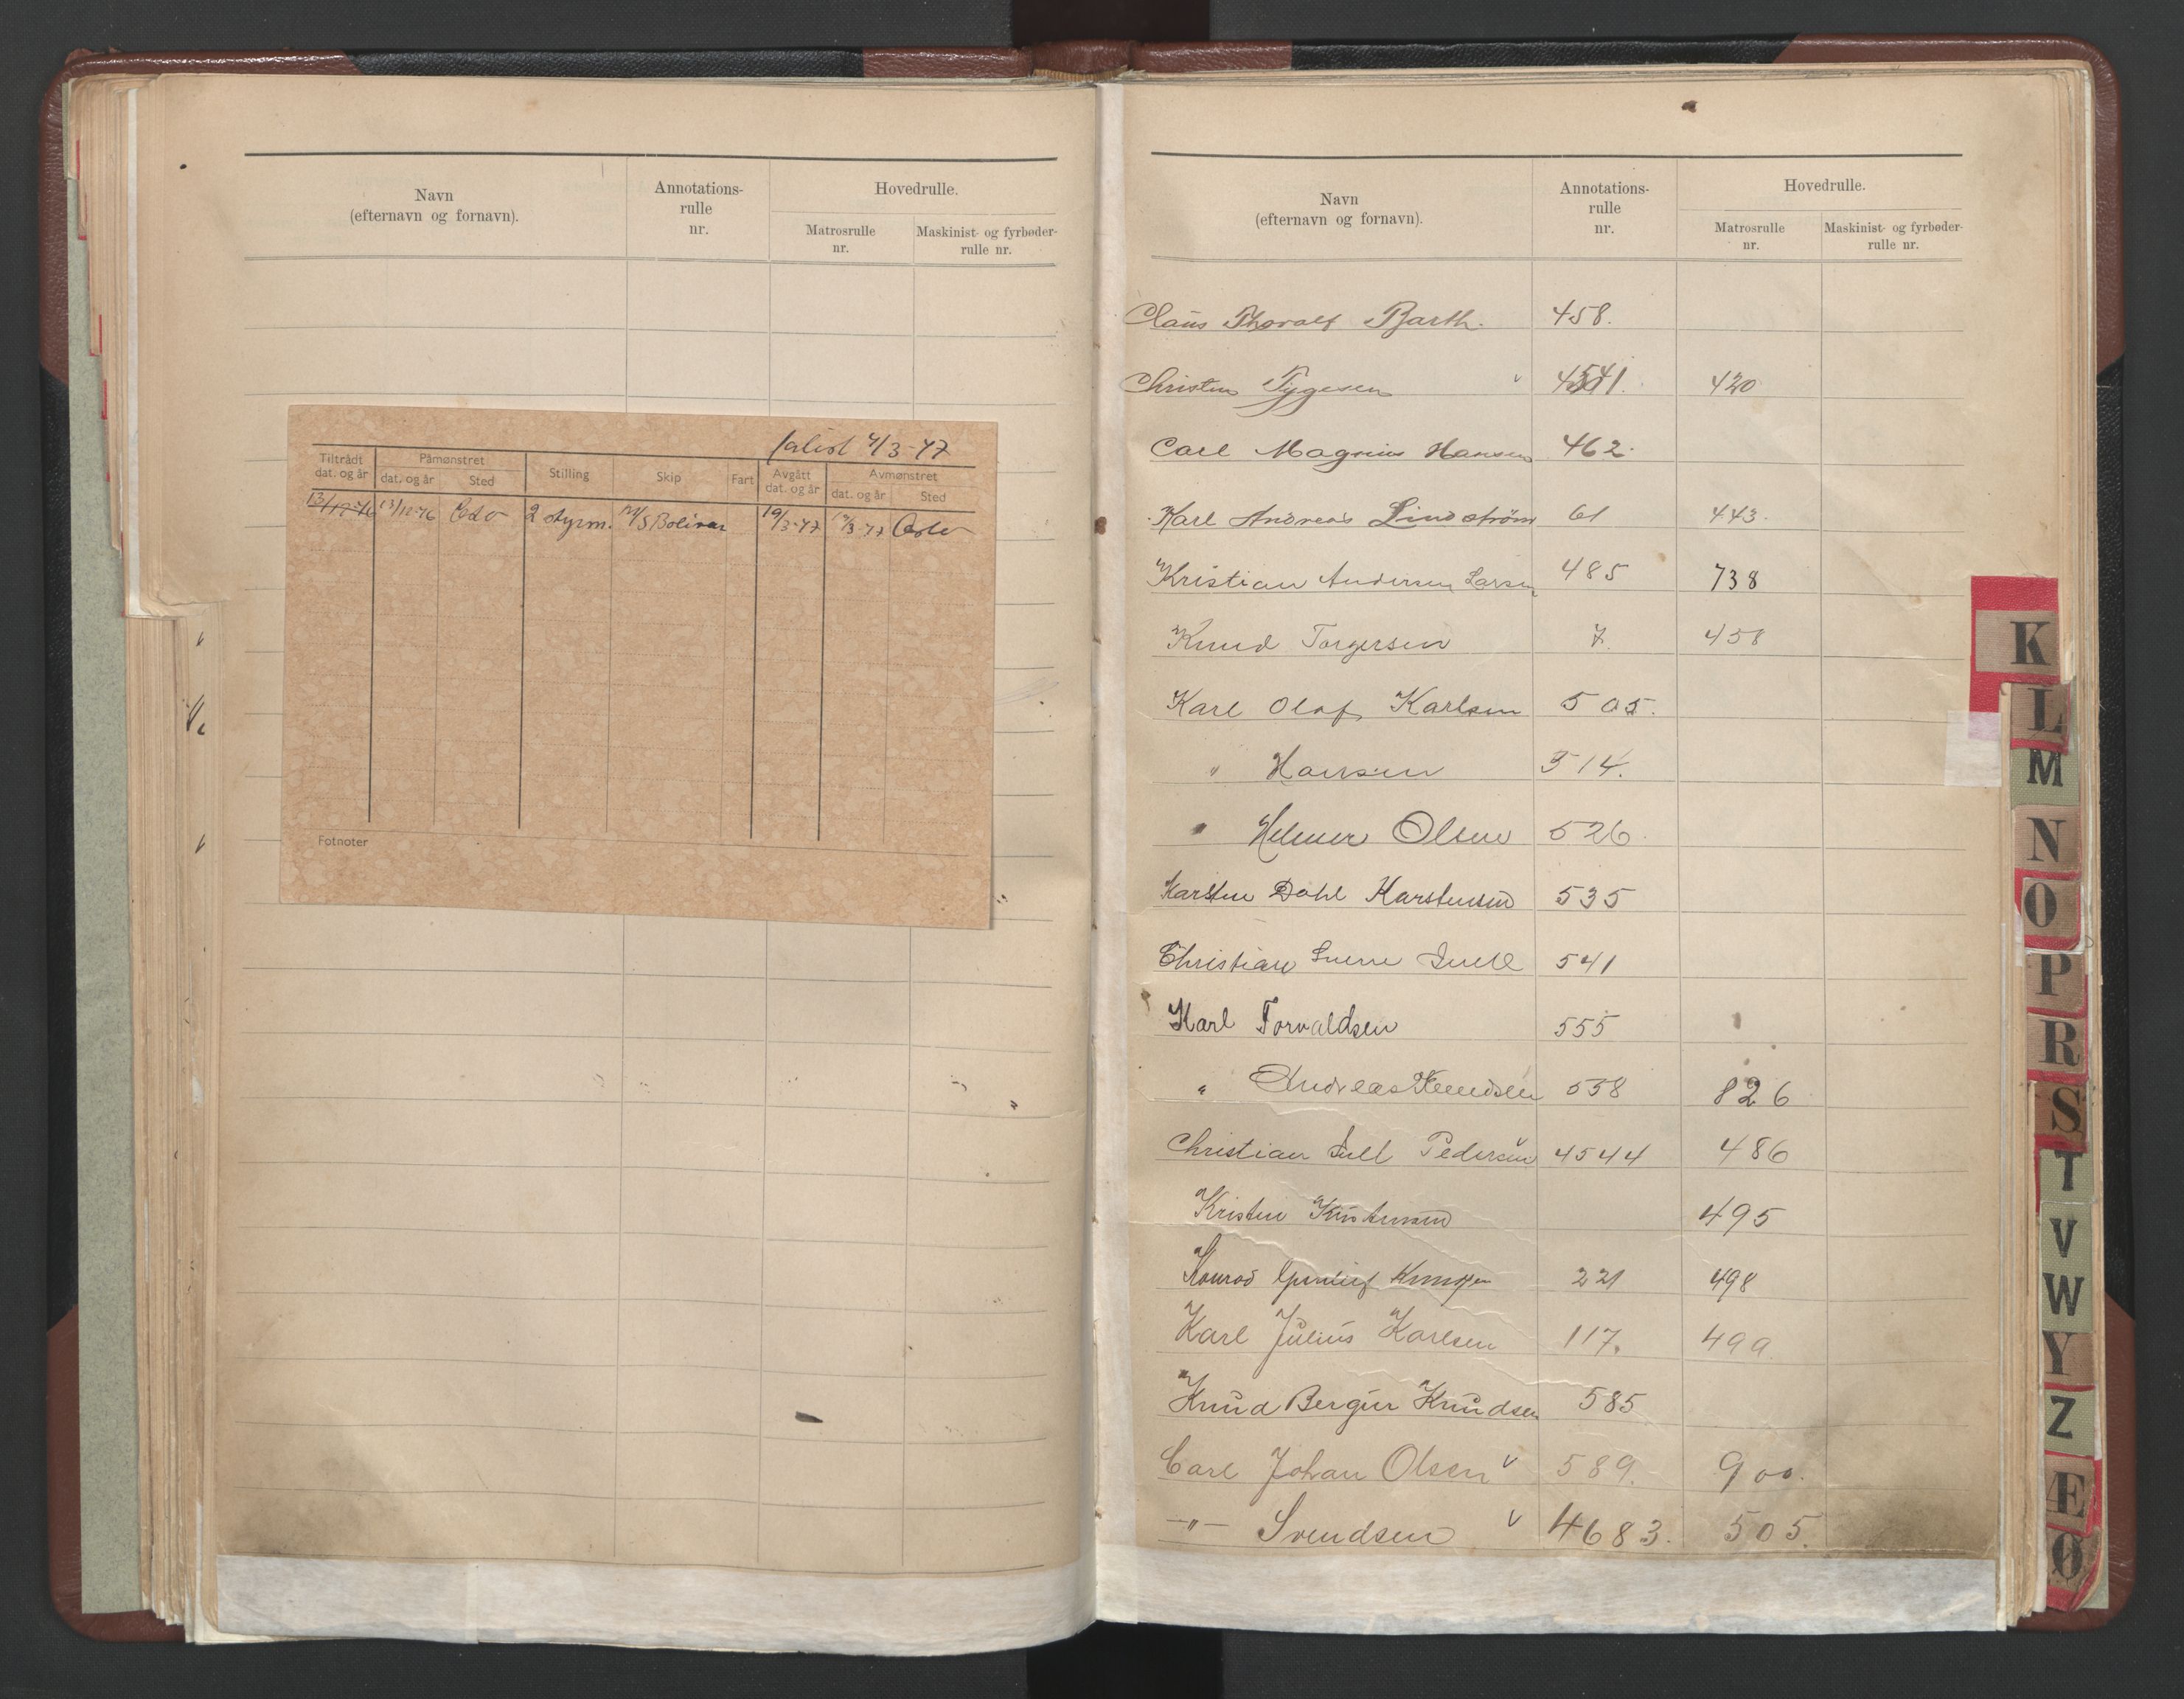 Navn
(efternavn og fornavn).
Annotations-
rulle
nr.
Hovedrulle.
Matrosrulle
nr.
Maskinist- og fyrbøder-
rulle nr.
4/3-47
Tiltrådt
dat. og år
Påmønstret
dat. og år Sted
Stilling
Skip
Fart
Avgått
dat. og år
Avmønstret
dat. og år Sted
13/12-46 13/12-46 Oslo 2 styrm. M/S Bolivar 19/3-47 19/3-47 Oslo
Fotnoter
Navn
(efternavn og fornavn).
Annotations-
rulle
nr.
Hovedrulle.
Matrosrulle
nr.
Maskinist- og fyrbøder-
rulle nr.
Claus Thoralf Barth. 458.
Christen Tygesen v 4541. 420
Carl Magnus Hansen 462.
Karl Andreas Lindström 61 443.
Kristian Andersen Larsen 485 738
Knud Torgersen 7. 458
Karl Olaf Karlsen 505.
" Hansen 514.
" Helmer Olsen 526.
Karsten Dahl Karstensen 535
Christian Sverre Juell 541
Karl Torvaldsen 555
" Andreas Knudsen 558 826
Christian Jull Pedersen v 4544 486
Kristen Kristensen 495
Konrad 221 498
Karl Julius Karlsen 117. 499
Knud Bergur Knudsen 585
Carl Johan Olsen v 589. 900.
-"- Svendsen v 4683. 505.
K
L
M
N
O
P
R
S
T
V
W
Y
Z
Æ
Ø